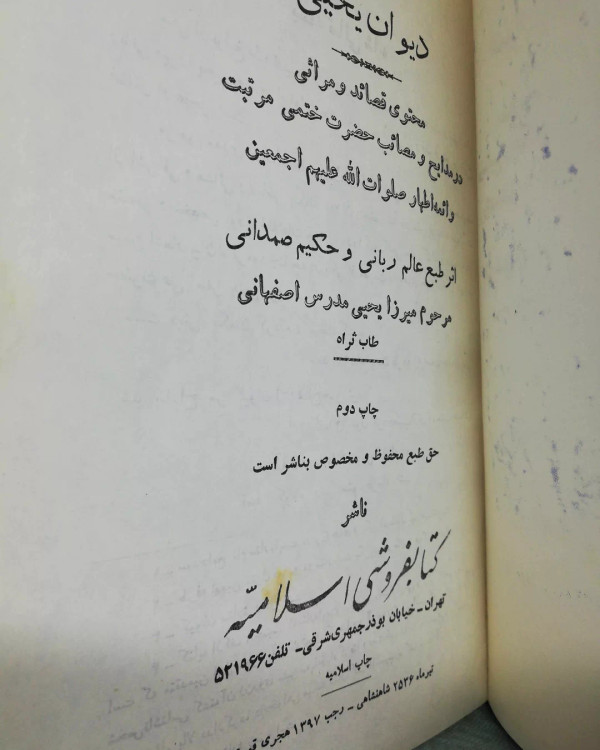 دیوان یحیی
محتوی قصائد و مراثی
در مدایح و مصائب حضرت ختمی مرتبت
و ائمه اطهار صلوات الله علیهم اجمعین
اثر طبع عالم ربانی و حکیم صمدانی
مرحوم میرزا یحیی مدرس اصفهانی
طاب ثراه
چاپ دوم
حق طبع محفوظ و مخصوص بناشر است
ناشر
کتابفروشی اسلامیّه
تهران - خیابان بوذرجمهری شرقی - تلفن ۵۲۱۹۶۶
چاپ اسلامیه
تیرماه ۲۵۳۶ شاهنشاهی - رجب ۱۳۹۷ هجری